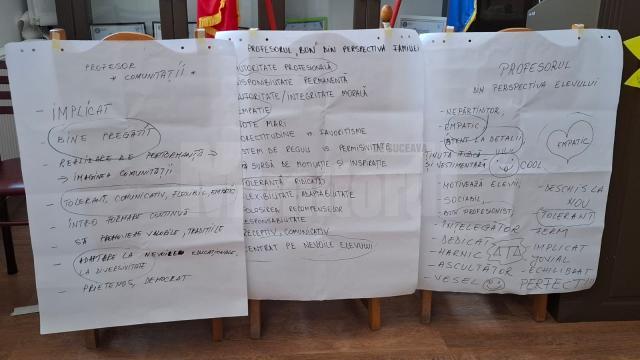 PROFESOR
* COMUNITĂȚII
- IMPLICAT
- BINE PREGĂTIT
- REALIZARE DE PERFORMANȚĂ →
→ IMAGINEA COMUNITĂȚII
- TOLERANT, COMUNICATIV, FLEXIBIL, EMPATIC
- ÎNTR-O FORMARE CONTINUĂ
- SĂ PROMOVEZE VALORILE, TRADIȚIILE
- ADAPTARE LA NEVOILE EDUCAȚIONALE,
LA DIVERSITATE
- PRIETENOS, DEMOCRAT
PROFESORUL „BUN” DIN PERSPECTIVA FAMILIEI
AUTORITATE PROFESIONALĂ
DISPONIBILITATE PERMANENTĂ
AUTORITATE/INTEGRITATE MORALĂ
EMPATIE
NOTE MARI
CORECTITUDINE vs FAVORITISME
SISTEM DE REGULI vs PERMISIVITATE
SURSĂ DE MOTIVAȚIE ȘI INSPIRAȚIE
TOLERANȚĂ RIDICATĂ
FLEXIBILITATE, ADAPTABILITATE
FOLOSIREA RECOMPENSELOR
RESPONSABILITATE
RECEPTIV, COMUNICATIV
CENTRAT PE NEVOILE ELEVULUI
SUCEAVA
PROFESORUL
DIN PERSPECTIVA ELEVULUI
- NEPĂRTINITOR,
- EMPATIC
- ATENT LA DETALII,
ȚINUTĂ FIZICĂ
ȘI VESTIMENTARĂ COOL
- MOTIVEAZĂ ELEVII,
- SOCIABIL,
- BUN PROFESIONIST,
- ÎNȚELEGĂTOR
- DEDICAT
- HARNIC
- ASCULTĂTOR
- VESEL
EMPATIC
- DESCHIS LA
NOU
- TOLERANT
- FERM
- IMPLICAT
- JOVIAL
- ECHILIBRAT
PERFECT!